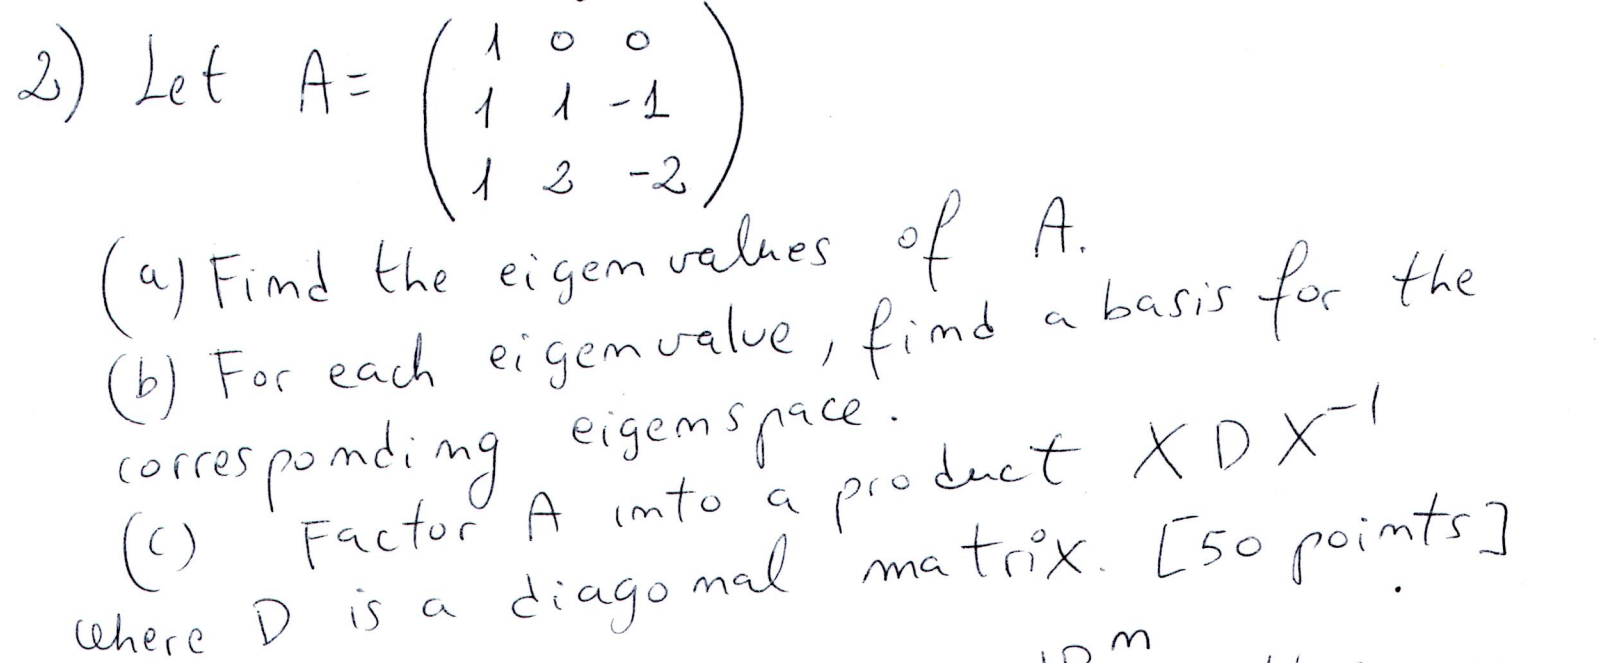 2) Let A = ( 1 0 0
1 1 -1
1 2 -2 )
(a) Find the eigenvalues of A.
(b) For each eigenvalue, find a basis for the
corresponding eigenspace.
(c) Factor A into a product XDX⁻¹
where D is a diagonal matrix. [50 points]